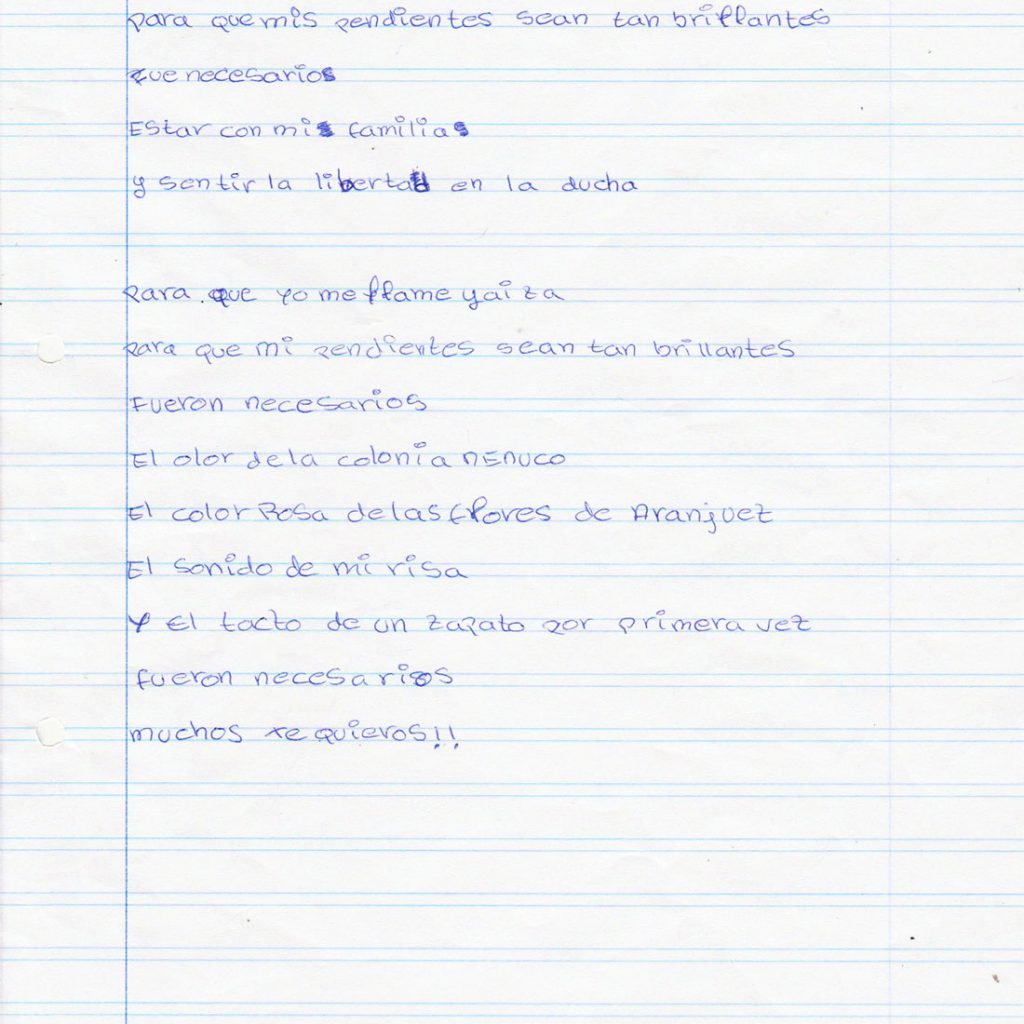 para que mis pendientes sean tan brillantes
fue necesarios
Estar con mis familias
y sentir la libertad en la ducha
para que yo me llame yaiza
para que mi pendientes sean tan brillantes
Fueron necesarios
El olor de la colonia NENUCO
El color Rosa de las flores de Aranjuez
El sonido de mi risa
Y El tacto de un zapato por primera vez
fueron necesarios
muchos te quieros!!